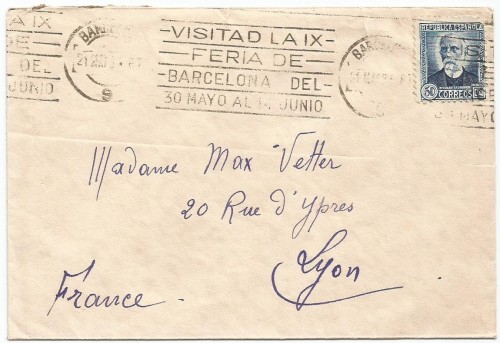 A IX
E DE
DEL
JUNIO
21
VISITAD LA IX
FERIA DE
BARCELONA DEL
30 MAYO AL 14 JUNIO
REPUBLICA ESPAÑOLA
50 CORREOS
MAYO
Madame Max Vetter
20 Rue d'Ypres
Lyon
France.